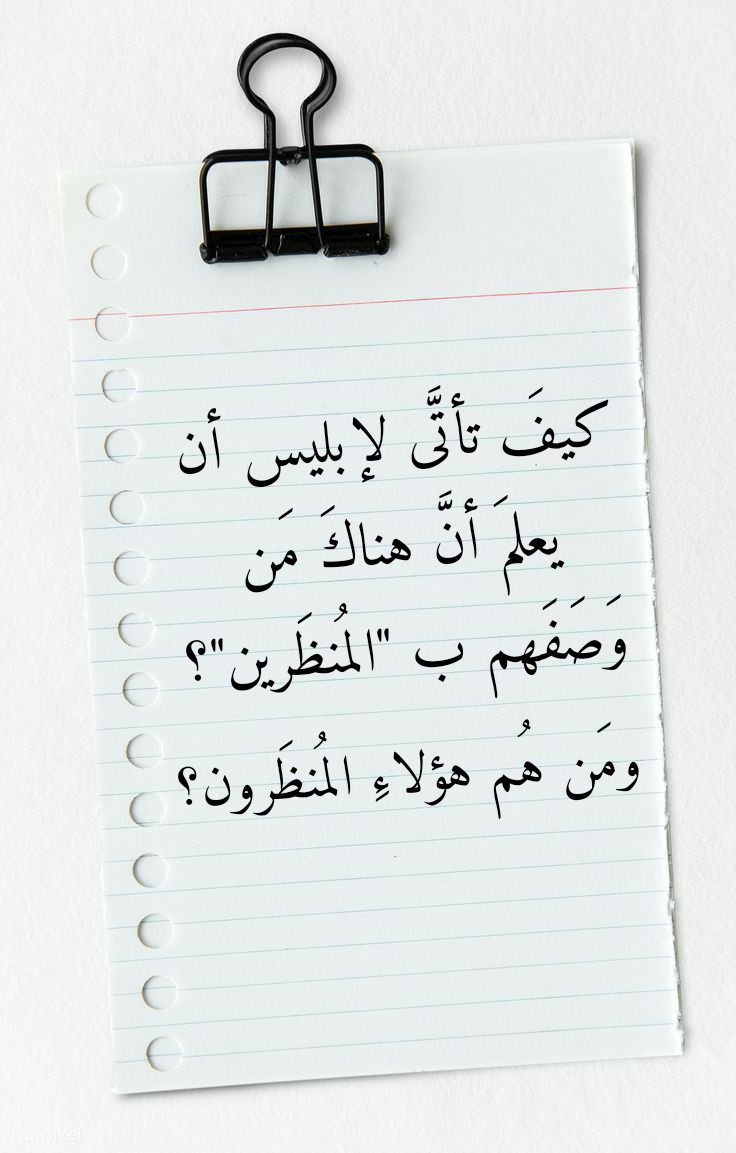 كيفَ تأتَّى لإبليس أن
يعلمَ أنَّ هناكَ مَن
وَصَفَهم ب "المُنظَرين"؟
ومَن هُم هؤلاءِ المُنظَرون؟
rawpixel